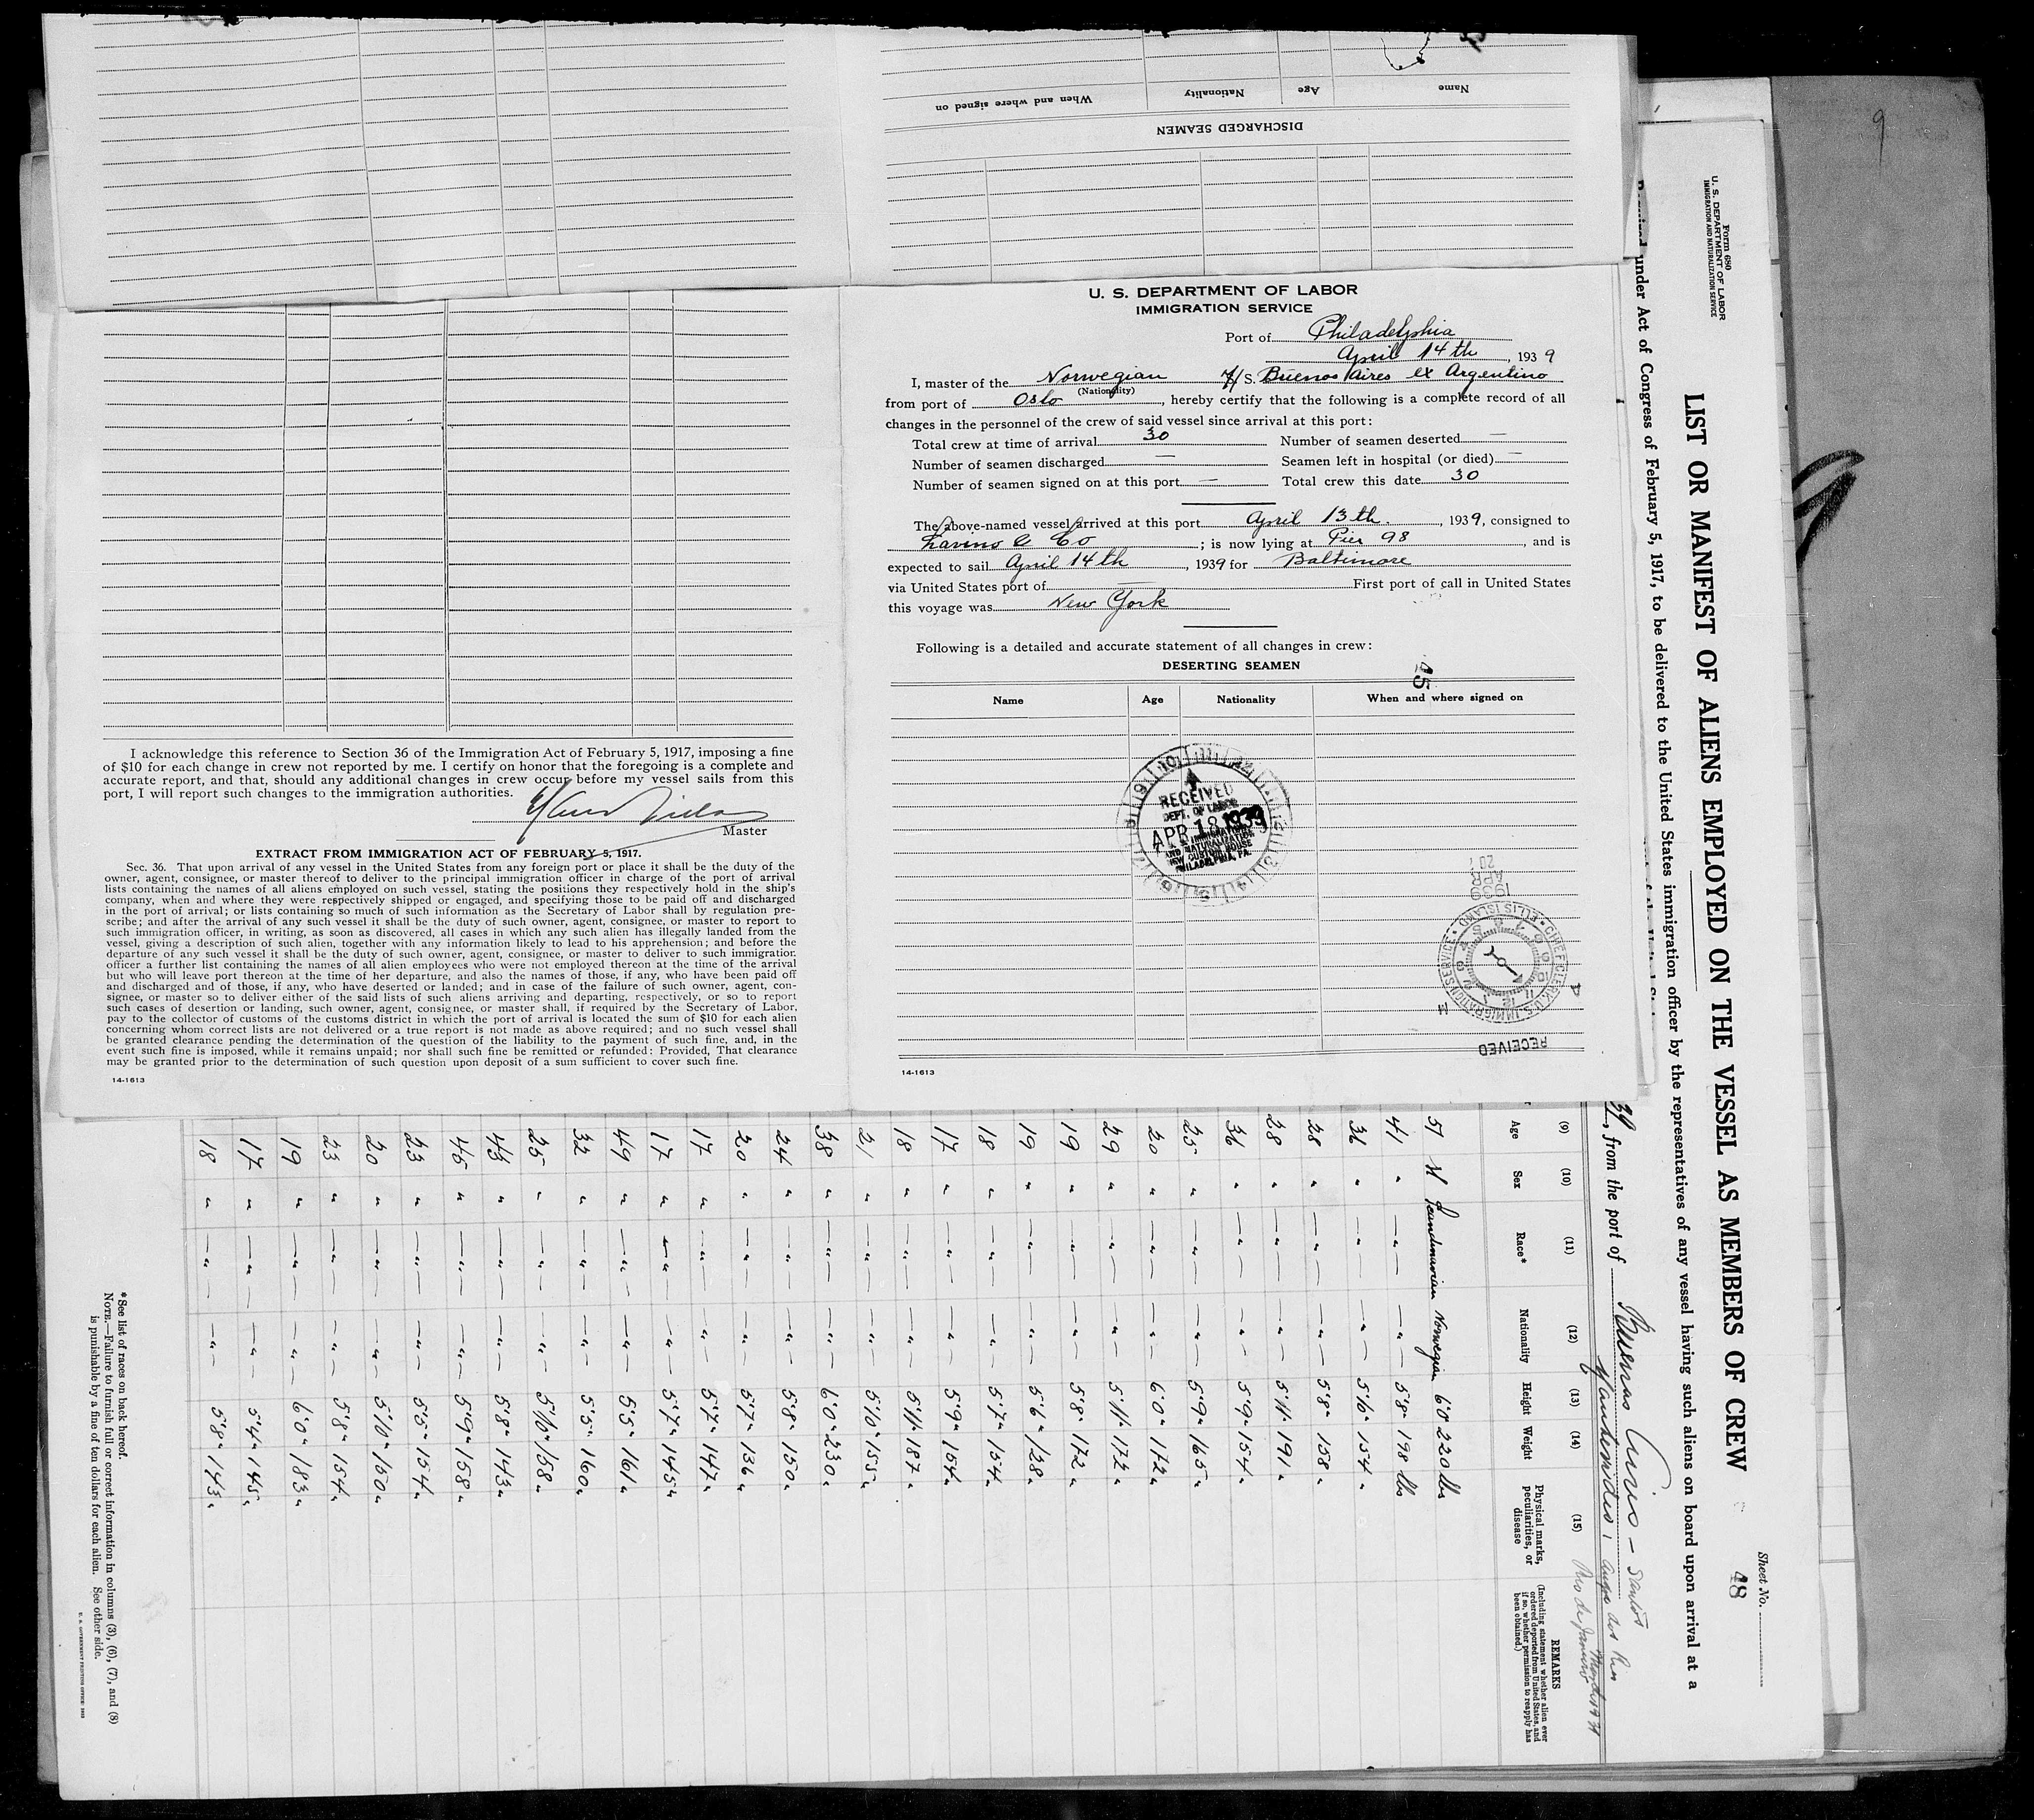 Name Age Nationality When and where signed on
DISCHARGED SEAMEN
U. S. DEPARTMENT OF LABOR
IMMIGRATION SERVICE
Port of Philadelphia
April 14th, 1939
I, master of the Norwegian M/S. Buenos Aires ex Argentino
(Nationality)
from port of Oslo, hereby certify that the following is a complete record of all
changes in the personnel of the crew of said vessel since arrival at this port:
Total crew at time of arrival 30 Number of seamen deserted —
Number of seamen discharged — Seamen left in hospital (or died) —
Number of seamen signed on at this port — Total crew this date 30
The above-named vessel arrived at this port April 13th., 1939, consigned to
& Co; is now lying at Pier 98, and is
expected to sail April 14th, 1939 for Baltimore
via United States port of — First port of call in United States
this voyage was New York
Following is a detailed and accurate statement of all changes in crew:
DESERTING SEAMEN
45
Name Age Nationality When and where signed on
RECEIVED
DEPT. OF LABOR
APR 18 1939
IMMIGRATION
AND NATURALIZATION
NEW CUSTOM HOUSE
PHILADELPHIA, PA.
RECEIVED
CHIEF CLERK U.S. IMMIGRATION SERVICE • ELLIS ISLAND •
1939
APR
14-1613
I acknowledge this reference to Section 36 of the Immigration Act of February 5, 1917, imposing a fine
of $10 for each change in crew not reported by me. I certify on honor that the foregoing is a complete and
accurate report, and that, should any additional changes in crew occur before my vessel sails from this
port, I will report such changes to the immigration authorities.
Master
EXTRACT FROM IMMIGRATION ACT OF FEBRUARY 5, 1917.
Sec. 36. That upon arrival of any vessel in the United States from any foreign port or place it shall be the duty of the
owner, agent, consignee, or master thereof to deliver to the principal immigration officer in charge of the port of arrival
lists containing the names of all aliens employed on such vessel, stating the positions they respectively hold in the ship's
company, when and where they were respectively shipped or engaged, and specifying those to be paid off and discharged
in the port of arrival; or lists containing so much of such information as the Secretary of Labor shall by regulation pre-
scribe; and after the arrival of any such vessel it shall be the duty of such owner, agent, consignee, or master to report to
such immigration officer, in writing, as soon as discovered, all cases in which any such alien has illegally landed from the
vessel, giving a description of such alien, together with any information likely to lead to his apprehension; and before the
departure of any such vessel it shall be the duty of such owner, agent, consignee, or master to deliver to such immigration
officer a further list containing the names of all alien employees who were not employed thereon at the time of the arrival
but who will leave port thereon at the time of her departure, and also the names of those, if any, who have been paid off
and discharged and of those, if any, who have deserted or landed; and in case of the failure of such owner, agent, con-
signee, or master so to deliver either of the said lists of such aliens arriving and departing, respectively, or so to report
such cases of desertion or landing, such owner, agent, consignee, or master shall, if required by the Secretary of Labor,
pay to the collector of customs of the customs district in which the port of arrival is located the sum of $10 for each alien
concerning whom correct lists are not delivered or a true report is not made as above required; and no such vessel shall
be granted clearance pending the determination of the question of the liability to the payment of such fine, and, in the
event such fine is imposed, while it remains unpaid; nor shall such fine be remitted or refunded: Provided, That clearance
may be granted prior to the determination of such question upon deposit of a sum sufficient to cover such fine.
14-1613
9
Form 680
U. S. DEPARTMENT OF LABOR
IMMIGRATION AND NATURALIZATION SERVICE
Sheet No.
48
LIST OR MANIFEST OF ALIENS EMPLOYED ON THE VESSEL AS MEMBERS OF CREW
under Act of Congress of February 5, 1917, to be delivered to the United States immigration officer by the representatives of any vessel having such aliens on board upon arrival at a
39, from the port of Buenos Aires – Santos
Rio de Janeiro
(9) (10) (11) (12) (13) (14) (15) REMARKS
Age Sex Race* Nationality Height Weight Physical marks, peculiarities, or disease (Including statement whether alien ever ordered deported from United States, and if so, whether permission to reapply has been obtained.)
51 M Scandinavian Norwegian 6'0 220 lbs
41 " — " — — " — 5'8" 198 lbs
36 " — " — — " — 5'10" 154 "
28 " — " — — " — 5'8" 158 "
28 " — " — — " — 5'11" 191 "
36 " — " — — " — 5'9" 154 "
25 " — " — — " — 5'9" 165 "
20 " — " — — " — 6'0" 172 "
29 " — " — — " — 5'11" 172 "
19 " — " — — " — 5'8" 172 "
19 " — " — — " — 5'6" 128 "
18 " — " — — " — 5'7" 154 "
17 " — " — — " — 5'9" 154 "
18 " — " — — " — 5'11" 187 "
21 " — " — — " — 5'10" 155 "
38 " — " — — " — 6'0" 230 "
24 " — " — — " — 5'8" 150 "
20 " — " — — " — 5'7" 136 "
17 " — " — — " — 5'7" 147 "
17 " — " — — " — 5'7" 145 "
49 " — " — — " — 5'5" 161 "
32 " — " — — " — 5'5" 160 "
25 " — " — — " — 5'10" 158 "
43 " — " — — " — 5'8" 143 "
45 " — " — — " — 5'9" 158 "
23 " — " — — " — 5'5" 154 "
20 " — " — — " — 5'10" 150 "
23 " — " — — " — 5'8" 154 "
19 " — " — — " — 6'0" 183 "
17 " — " — — " — 5'4" 145 "
18 " — " — — " — 5'8" 143 "
*See list of races on back hereof.
NOTE.—Failure to furnish full or correct information in columns (3), (6), (7), and (8)
is punishable by a fine of ten dollars for each alien. See other side.
U. S. GOVERNMENT PRINTING OFFICE